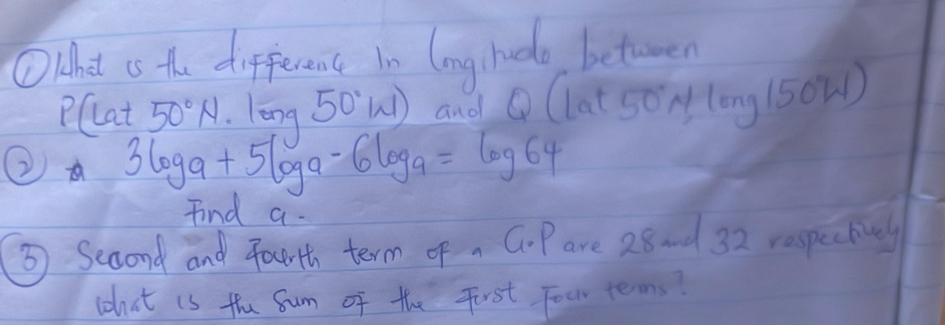 ① What is the difference in longitude between
P(Lat 50°N. long 50°W) and Q (Lat 50°N, long 150°W)
② 3loga + 5loga - 6loga = log 64
Find a.
③ Second and Fourth term of a G.P are 28 and 32 respectively
What is the sum of the First Four terms?